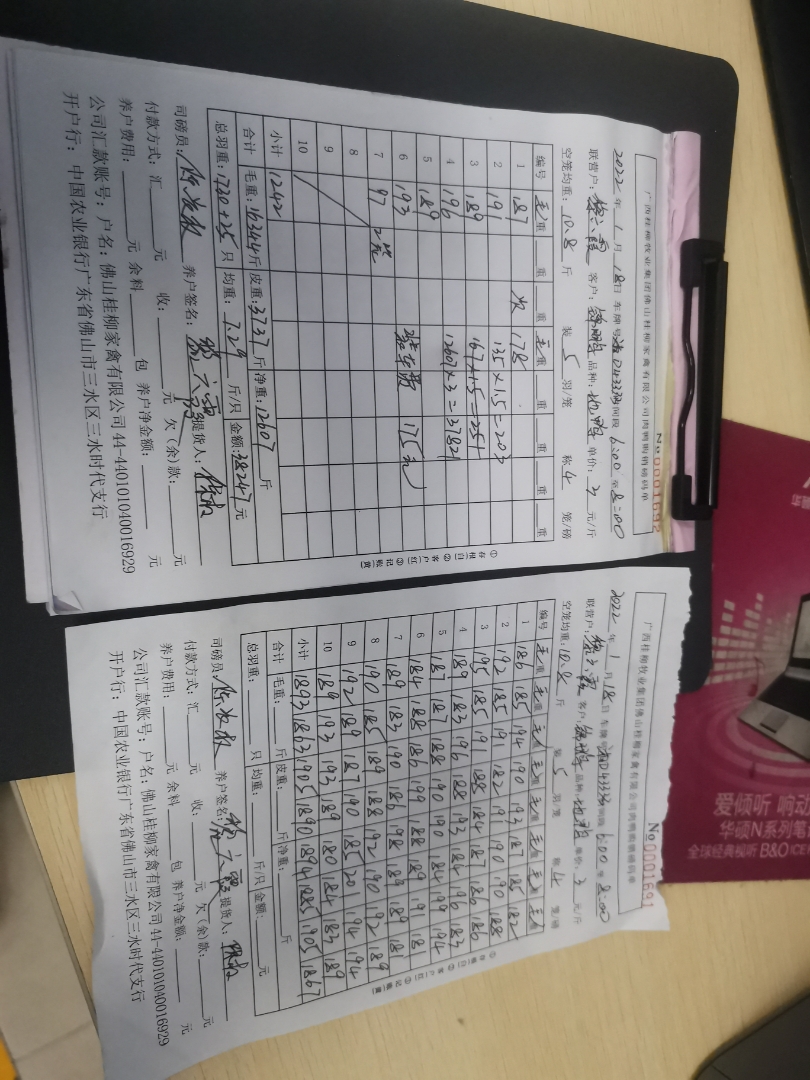 广西桂柳牧业集团佛山桂柳家禽有限公司肉鸭购销磅码单
No 0001692
2022年1月18日 车牌号 D43339 时间段 6:00 至 8:00
联营户: 客户: 品种: 地鸭 单价: 3 元/斤
空笼均重: 10.8 斤 装 5 羽/笼 称 4 笼/磅
编号 毛重 重 重 毛重 重 重 重 重
1 187 次 178
2 191 135×1.5=203
3 189 167×1.5=251
4 196 12607×3=37821
5 189
6 193 装车费 175元
7 97 2笼
8
9
10
小计 1242
合计 毛重: 16344 斤 皮重: 3737 斤 净重: 12607 斤
总羽重: 1730+25 只 均重: 7.29 斤/只 金额: 38247 元
司磅员: 养户签名: 提货人:
付款方式: 汇 元 收: 元 欠(余)款: 元
养户费用: 元 余料 包 养户净金额: 元
公司汇款账号: 户名: 佛山桂柳家禽有限公司 44-440101040016929
开户行: 中国农业银行广东省佛山市三水区三水时代支行
①存根(白) ②客户(红) ③记账(黄)
广西桂柳牧业集团佛山桂柳家禽有限公司肉鸭购销磅码单
No 0001691
2022年1月18日 车牌号 D43339 时间段 6:00 至 8:00
联营户: 客户: 品种: 地鸭 单价: 3 元/斤
空笼均重: 10.8 斤 装 5 羽/笼 称 4 笼/磅
编号 毛重 毛重 毛重 毛重 毛重 毛重 毛重 毛重
1 186 185 194 190 193 187 185 182
2 192 185 191 182 191 190 190 188
3 195 185 191 188 184 187 186 186
4 189 183 196 188 193 184 196 183
5 187 187 188 190 190 184 199 194
6 184 188 186 199 188 189 191 181
7 189 183 190 186 198 189 189 181
8 190 185 189 188 192 190 192 189
9 192 189 187 190 185 201 194 194
10 189 193 193 189 180 184 183 189
小计 1893 1863 1905 1890 1894 1885 1905 1867
合计 毛重: 斤 皮重: 斤 净重: 斤
总羽重: 只 均重: 斤/只 金额: 元
司磅员: 养户签名: 提货人:
付款方式: 汇 元 收: 元 欠(余)款: 元
养户费用: 元 余料 包 养户净金额: 元
公司汇款账号: 户名: 佛山桂柳家禽有限公司 44-440101040016929
开户行: 中国农业银行广东省佛山市三水区三水时代支行
爱倾听 响动
华硕N系列笔
全球经典视听 B&O ICE